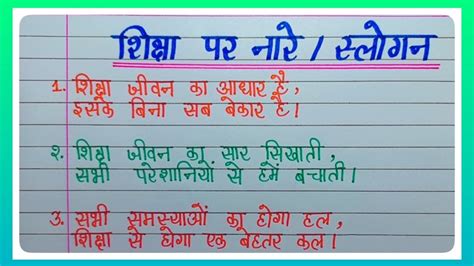 शिक्षा पर नारे / स्लोगन
1. शिक्षा जीवन का आधार है,
इसके बिना सब बेकार है।
२. शिक्षा जीवन का सार सिखाती,
सभी परेशानियों से हमें बचाती।
3. सभी समस्याओं का होगा हल,
शिक्षा से होगा एक बेहतर कल।